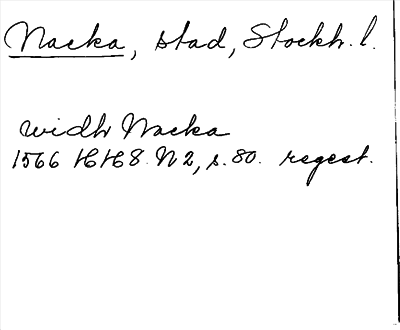 Nacka, stad, Stockh. l.
widh Nacka
1566 HH 8 N 2, s. 80. regest.